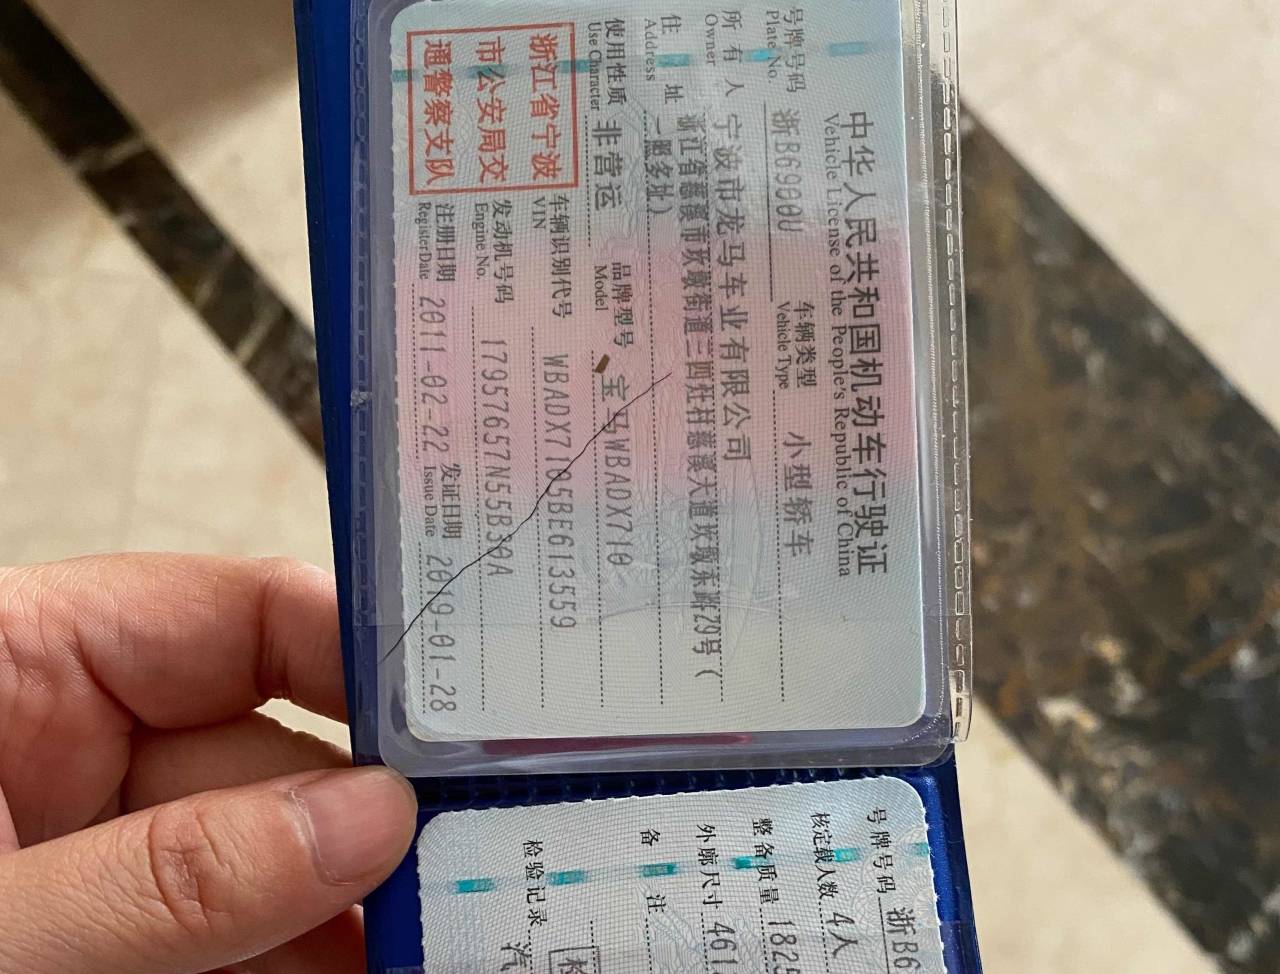 中华人民共和国机动车行驶证
Vehicle License of the People's Republic of China
号牌号码 浙B6900U 车辆类型 小型轿车
Plate No. Vehicle Type
所有人 宁波市龙马车业有限公司
Owner
住址 浙江省慈溪市坎墩街道三四灶村慈溪大道坎墩东路29号(
Address 一照多址)
使用性质 非营运 品牌型号 宝马WBADX710
Use Character Model
浙江省宁波
市公安局交
通警察支队
车辆识别代号 WBADX7105BE613559
VIN
发动机号码 17957657N55B30A
Engine No.
注册日期 2011-02-22 发证日期 2019-01-28
Register Date Issue Date
号牌号码 浙B6
核定载人数 4人
整备质量 182
外廓尺寸 461
备注
检验记录 检
汽